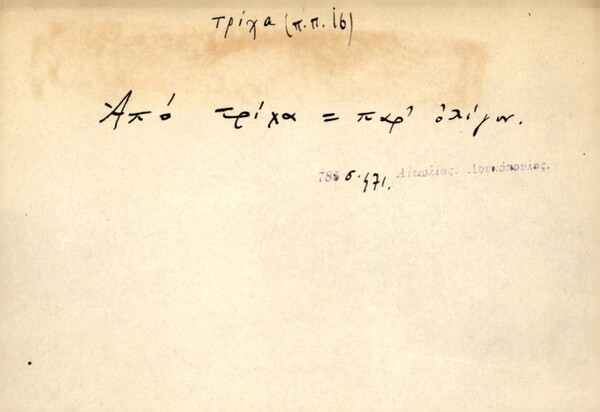 τρίχα (π.π. 16)
Ἀπό τρίχα = παρ' ὀλίγον.
786 σ. 471. Αἰτωλίας. Λουκόπουλος.